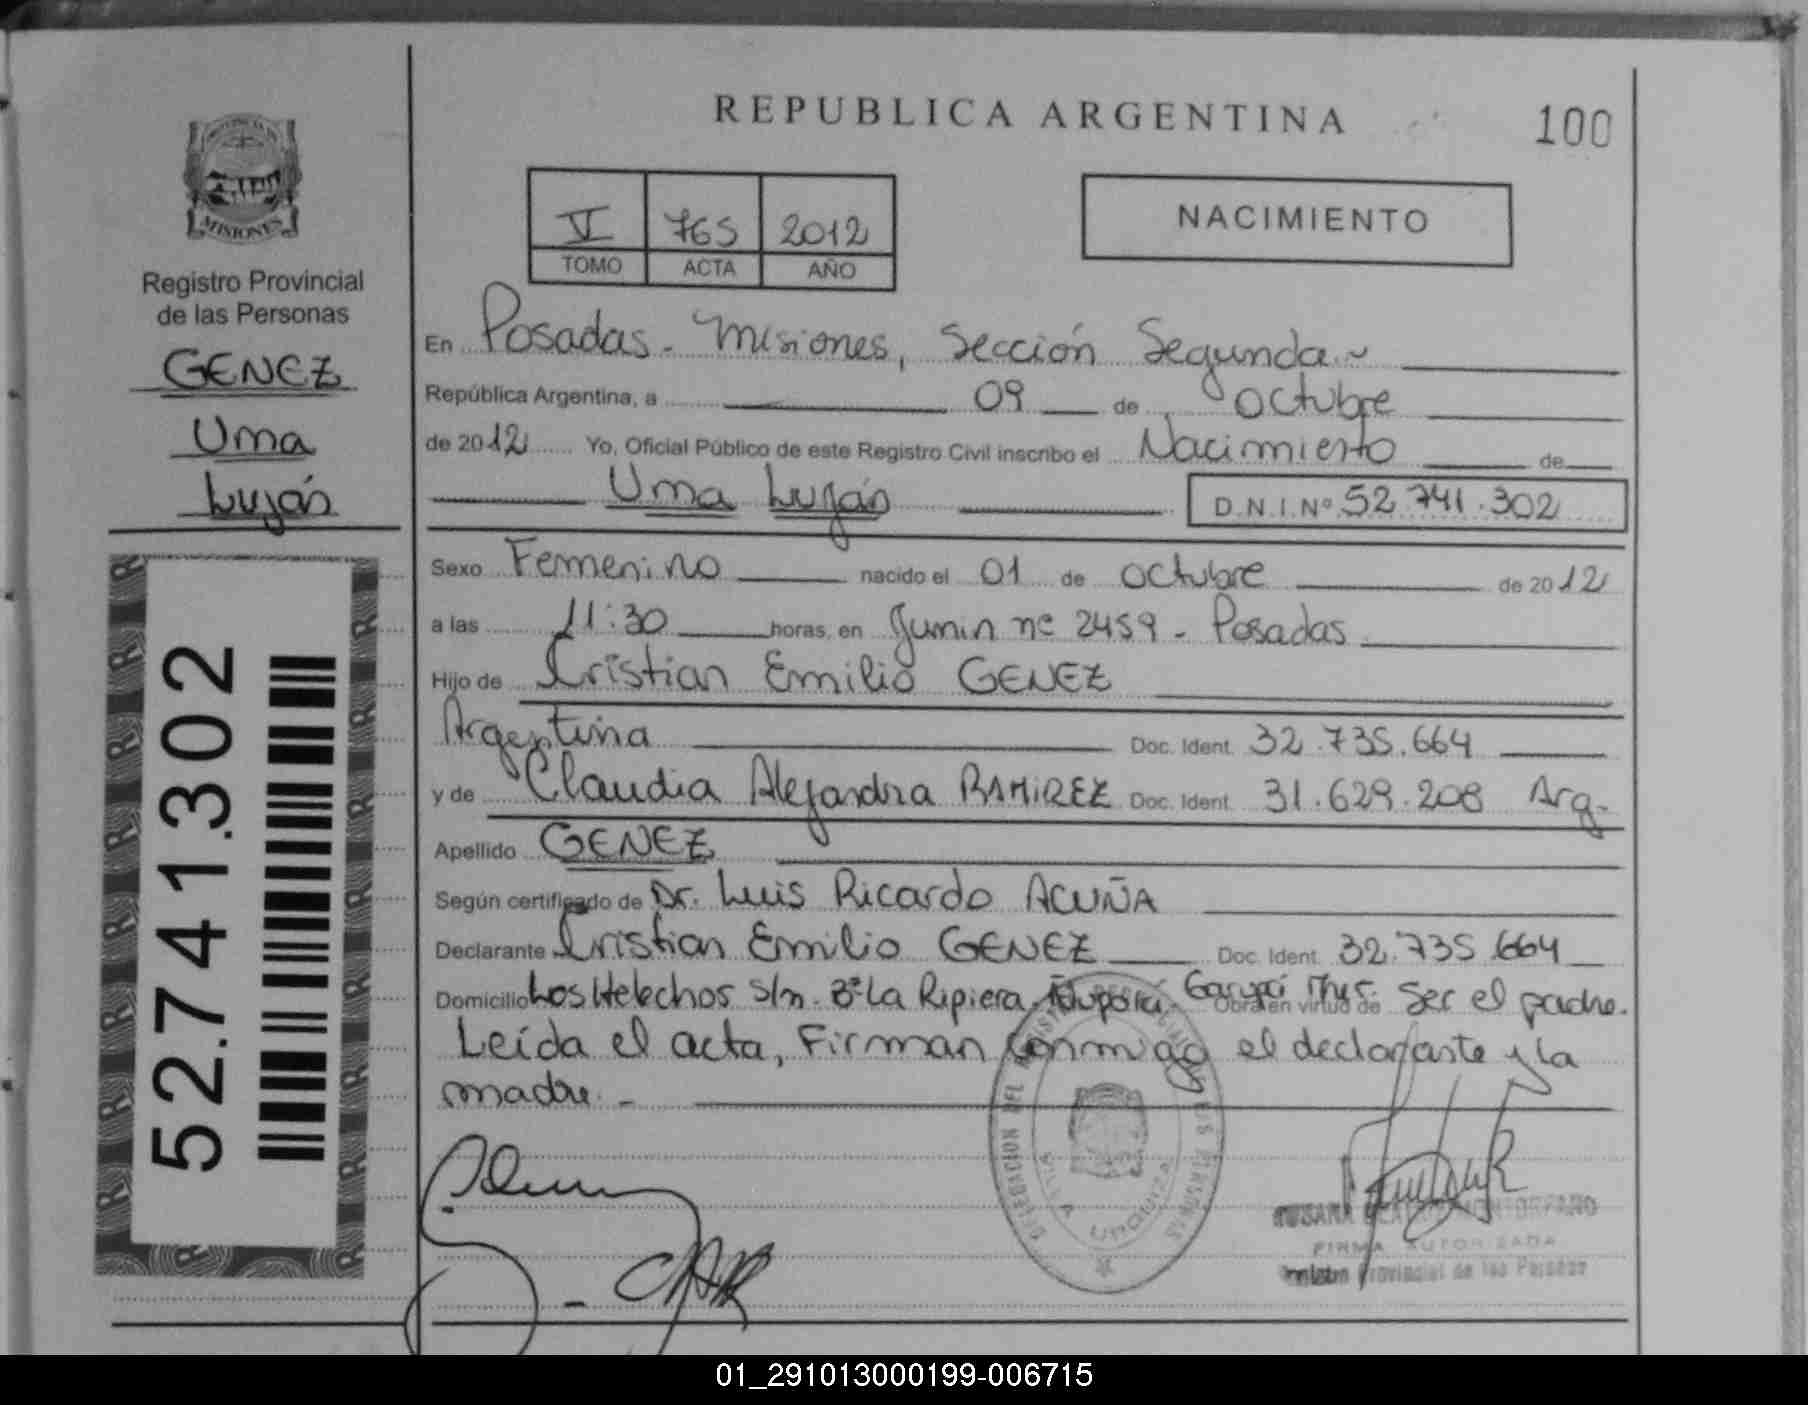 REPUBLICA ARGENTINA
100
VI 765 2012
TOMO ACTA AÑO
NACIMIENTO
MISIONES
Registro Provincial
de las Personas
GENEZ
Uma
Luján
52.741.302
En Posadas - Misiones, Sección Segunda
República Argentina, a 09 de octubre
de 2012 Yo, Oficial Público de este Registro Civil inscribo el Nacimiento de
Uma Luján D.N.I.Nº 52.741.302
Sexo Femenino nacido el 01 de octubre de 2012
a las 11:30 horas, en Junin nº 2459 - Posadas
Hijo de Cristian Emilio GENEZ
Argentina Doc. Ident. 32.735.664
y de Claudia Alejandra RAMIREZ Doc. Ident. 31.629.208 Arg.
Apellido GENEZ
Según certificado de Dr. Luis Ricardo ACUÑA
Declarante Cristian Emilio GENEZ Doc. Ident. 32.735.664
Domicilio Los Helechos s/n. Bº La Ripiera, Garupá Obra en virtud de Ser el padre.
Leída el acta, Firman conmigo el declarante y la
madre. -
DELEGACION DEL REGISTRO PROVINCIAL DE LAS PERSONAS
VILLA URQUIZA
FIRMA AUTORIZADA
Provincial de las Personas
01_291013000199-006715